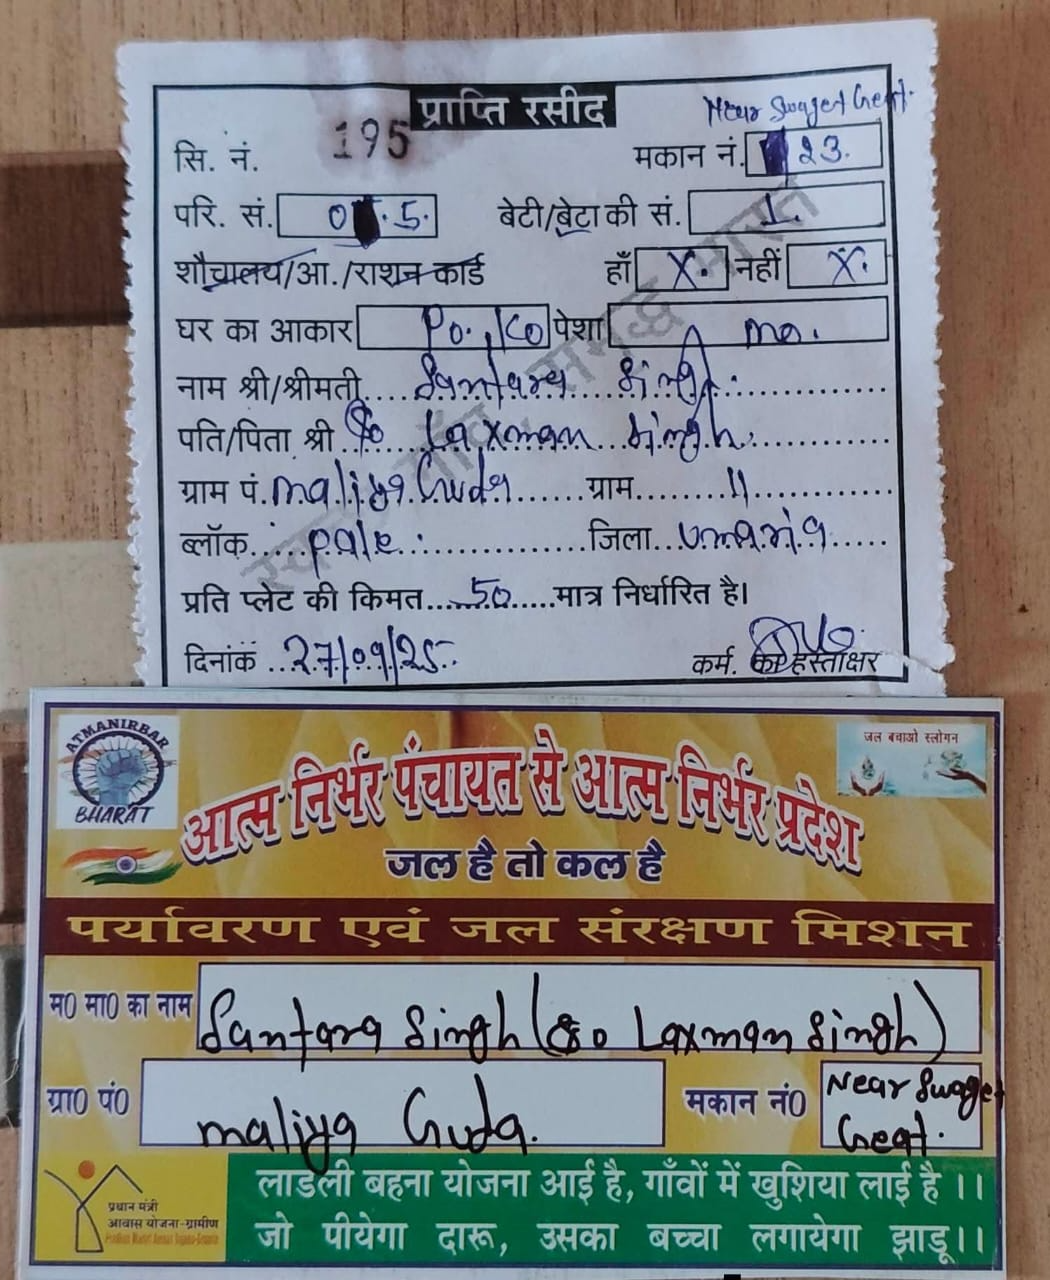 प्राप्ति रसीद
Near Swaget Geat.
सि. नं. 195 मकान नं. 23.
परि. सं. 0 .5. बेटी/बेटा की सं. 1.
शौचालय/आ./राशन कार्ड हाँ X. नहीं X.
घर का आकार Po. Ko पेशा ma.
नाम श्री/श्रीमती Santara Singh
पति/पिता श्री S/o Laxman Singh.
ग्राम पं. maliya Guda ग्राम 11
ब्लॉक pale जिला Umaria
प्रति प्लेट की किमत 50 मात्र निर्धारित है।
दिनांक 27/09/25 कर्म. का हस्ताक्षर
स्वच्छ गाँव, समृद्ध भारत
ATMANIRBAR BHARAT
जल बचाओ स्लोगन
आत्म निर्भर पंचायत से आत्म निर्भर प्रदेश
जल है तो कल है
पर्यावरण एवं जल संरक्षण मिशन
म0 मा0 का नाम Santara Singh (S/o Laxman Singh)
ग्रा0 पं0 maliya Guda. मकान नं0 Near Swaget Geat.
प्रधान मंत्री
आवास योजना-ग्रामीण
लाडली बहना योजना आई है, गाँवों में खुशिया लाई है ।।
जो पीयेगा दारू, उसका बच्चा लगायेगा झाडू।।